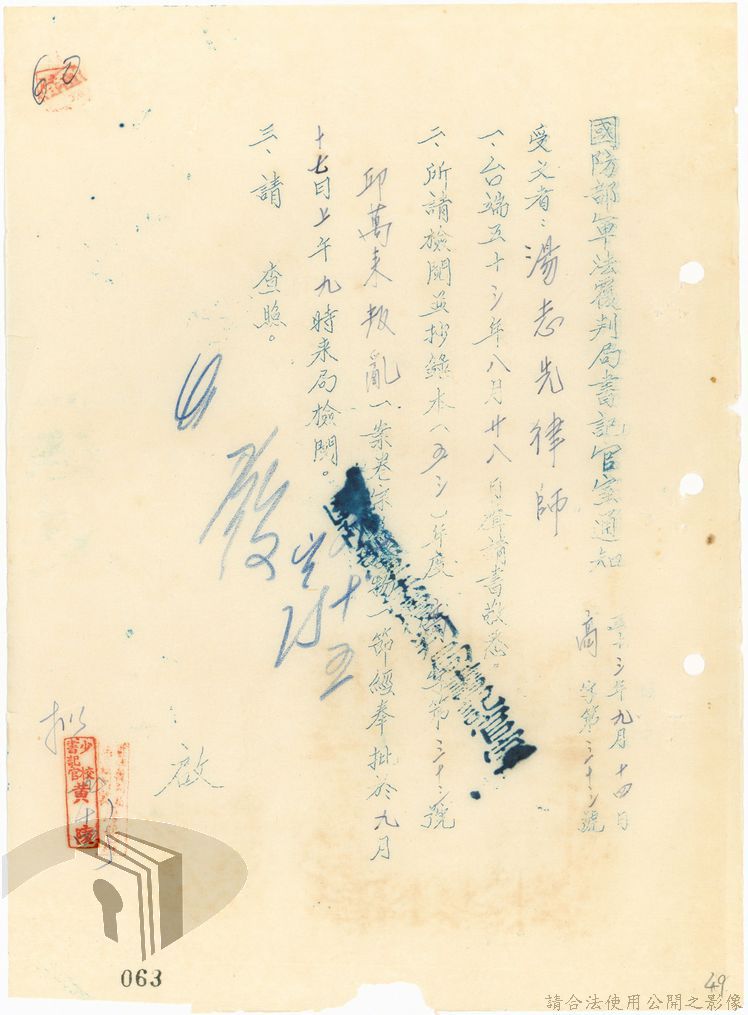 國防部軍法覆判局書記官室通知
五十三年九月十四日
高字第三十三號
受文者:湯志先律師
一、台端五十三年八月廿八日聲請書敬悉。
二、所請檢閱並抄錄本(五三)年度 第三十三號
邱萬來叛亂一案卷宗 一節經奉批於九月
十七日上午九時來局檢閱。
三、請 查照。
發
十五
啟
少校
書記官
黃
063
49
請合法使用公開之影像